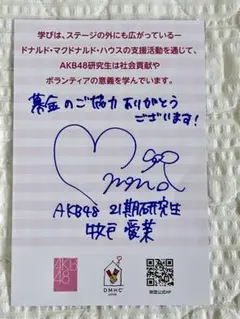 学びは、ステージの外にも広がっているー
ドナルド・マクドナルド・ハウスの支援活動を通じて、
AKB48研究生は社会貢献や
ボランティアの意義を学んでいます。
募金のご協力ありがとう
ございます!
AKB48 21期研究生
牧戸 愛茉
AKB
48
DMHC
財団公式HP